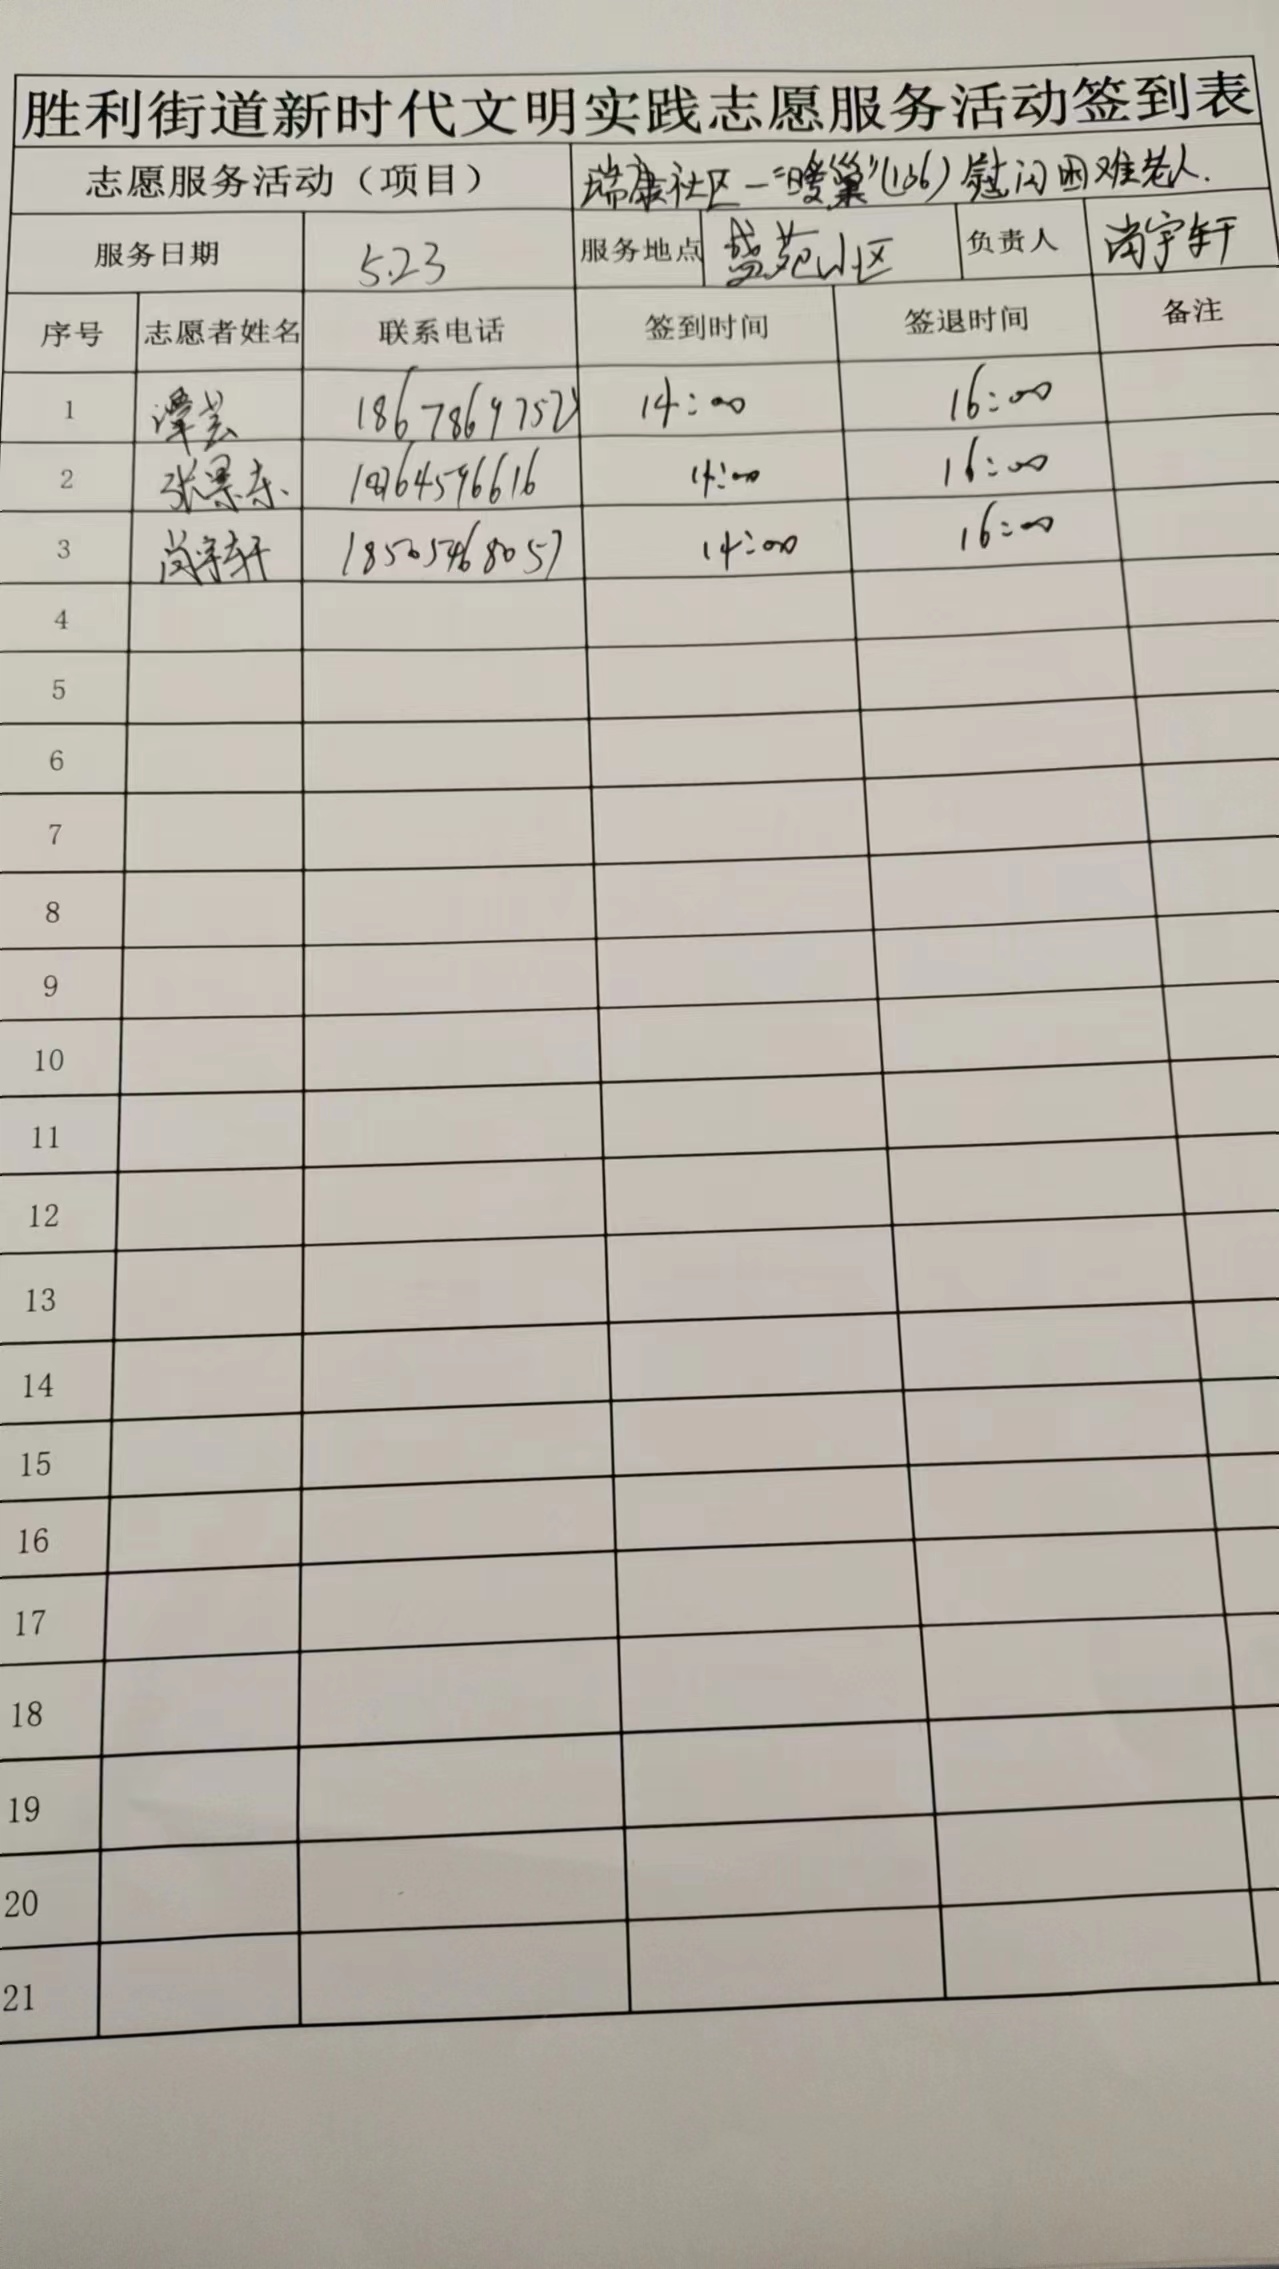 胜利街道新时代文明实践志愿服务活动签到表
志愿服务活动（项目） 瑞康社区—“暖巢”(136)慰问困难老人.
服务日期 5.23 服务地点 盛苑小区 负责人 尚宇轩
序号 志愿者姓名 联系电话 签到时间 签退时间 备注
1 谭芸 14:00 16:00
2 14:00 16:00
3 尚宇轩 18505468057 14:00 16:00
4
5
6
7
8
9
10
11
12
13
14
15
16
17
18
19
20
21